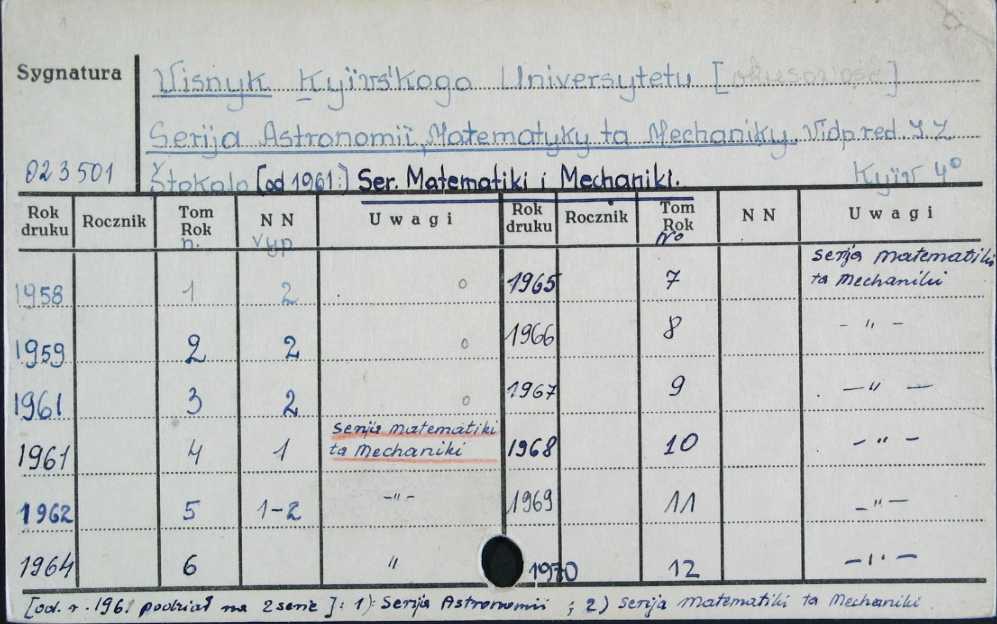 Sygnatura
Visnyk Kyïvs'kogo Universytetu [ ]
Serija Astronomiï, Matematyky ta Mechaniky. Vidp. red. I. Z.
023501 Štokalo [od 1961:] Ser. Matematiki i Mechaniki. Kyïv 4°
Rok druku Rocznik Tom Rok n. NN vyp Uwagi Rok druku Rocznik Tom Rok No NN Uwagi
1958 1 2 o 1965 7 serija matematiki ta Mechaniki
1959 2 2 o 1966 8 - " -
1961 3 2 o 1967 9 - " -
1961 4 1 serija matematiki ta Mechaniki 1968 10 - " -
1962 5 1-2 - " - 1969 11 - " -
1964 6 " 1970 12 - " -
[od. r. 1961 podział na 2 serie]: 1) Serija Astronomii ; 2) serija matematiki ta Mechaniki